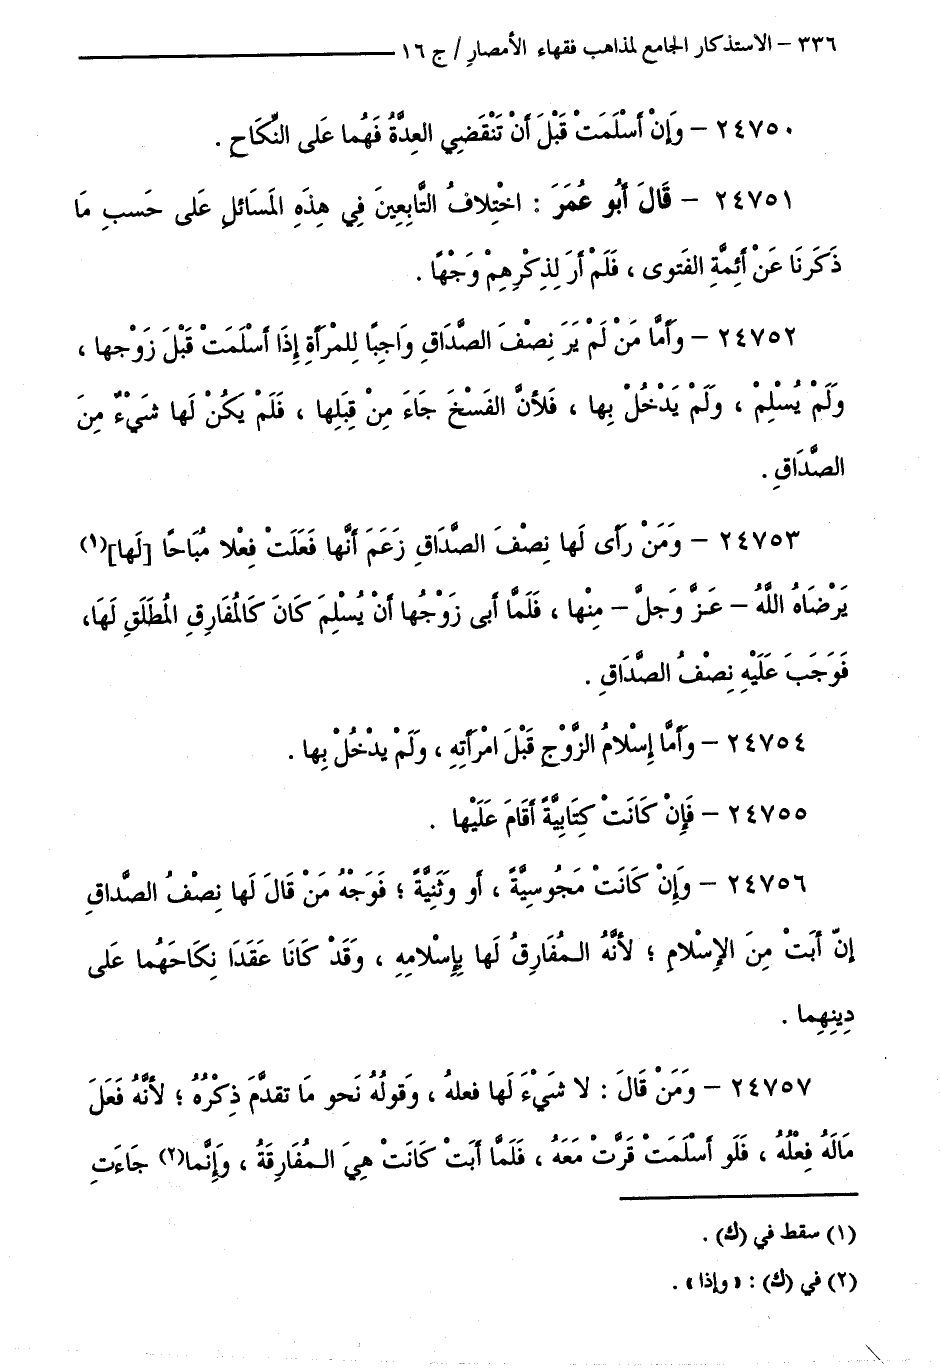 ٣٣٦ – الاستذكار الجامع لمذاهب فقهاء الأمصارِ / ج ١٦
٢٤٧٥٠ – وَإِنْ أَسْلَمَتْ قَبْلَ أَنْ تَنْقَضِي العِدَّةُ فَهُما عَلى النِّكَاحِ .
٢٤٧٥١ – قَالَ أَبُو عُمَرَ : اخْتِلافُ التَّابِعِينَ فِي هذِهِ المَسَائلِ عَلى حَسبِ مَا
ذَكَرنَا عَنْ أَئِمَّةِ الفَتوى ، فَلَمْ أَرَ لِذِكْرِهِمْ وَجْهًا .
٢٤٧٥٢ – وَأَمَّا مَنْ لَمْ يَرَ نِصْفَ الصَّدَاقِ وَاجِبًا لِلمْرَأَةِ إِذَا أَسْلَمَتْ قَبْلَ زَوْجها ،
وَلَمْ يُسْلِمْ ، وَلَمْ يَدْخُلْ بِها ، فَلأنَّ الفَسْخَ جَاءَ مِنْ قِبَلِها ، فَلَمْ يَكُنْ لَها شَيْءٌ مِنَ
الصَّدَاقِ .
٢٤٧٥٣ – وَمَنْ رَأى لَها نِصْفَ الصَّدَاقِ زَعَمَ أَنَّها فَعَلَتْ فِعْلا مُبَاحًا [لَها](١)
يَرْضَاهُ اللَّهُ – عَزَّ وَجلَّ – مِنْها ، فَلَمَّا أبى زَوْجُها أَنْ يُسْلِمَ كَانَ كَالمُفَارِقِ المُطَلِّقِ لَهَا،
فَوَجَبَ عَلَيْهِ نِصْفُ الصَّدَاقِ .
٢٤٧٥٤ – وَأَمَّا إِسْلامُ الزَّوْجِ قَبْلَ امْرَأَتِهِ ، وَلَمْ يدْخُلْ بِها .
٢٤٧٥٥ – فَإِنْ كَانَتْ كِتَابِيَّةً أَقَامَ عَلَيْها .
٢٤٧٥٦ – وَإِنْ كَانَتْ مَجُوسِيَّةً ، أَو وَثَنِيَّةً ؛ فَوَجْهُ مَنْ قَالَ لَها نِصْفُ الصَّداقِ
إِنّ أَبَتْ مِنَ الإِسْلامِ ؛ لأنَّهُ المُفَارِقُ لَها بِإِسْلامِهِ ، وَقَدْ كَانَا عَقَدَا نِكَاحَهُما عَلى
دِينِهِما .
٢٤٧٥٧ – وَمَنْ قَالَ : لا شَيْءَ لَها فعلهُ ، وَقولُهُ نَحو مَا تقدَّمَ ذِكْرُهُ ؛ لأنَّهُ فَعَلَ
مَالَهُ فِعْلُهُ ، فَلَو أَسْلَمَتْ قَرَّتْ مَعَهُ ، فَلَمَّا أَبَتْ كَانَتْ هِيَ المُفَارِقَةُ ، وَإِنَّما(٢) جَاءَتِ
(١) سقط في (ك) .
(٢) في (ك) : « وإذا » .